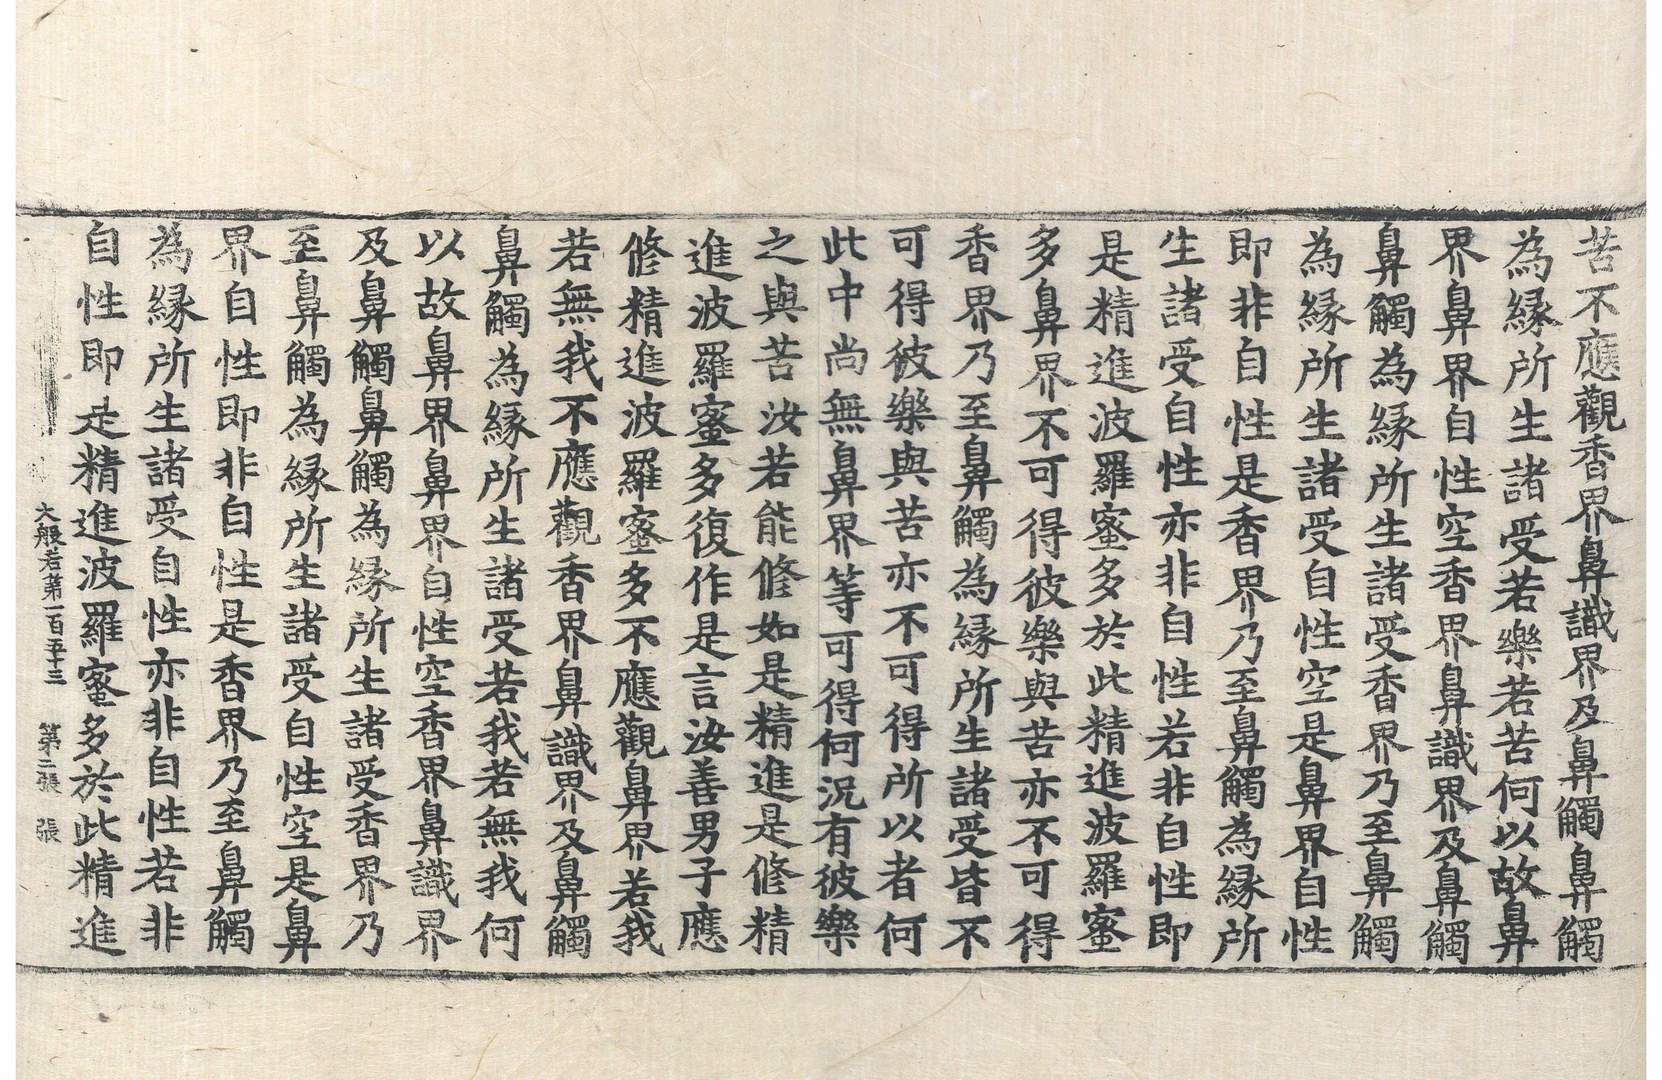 苦不應觀香界鼻識界及鼻觸鼻觸
為緣所生諸受若樂若苦何以故鼻
界鼻界自性空香界鼻識界及鼻觸
鼻觸為緣所生諸受香界乃至鼻觸
為緣所生諸受自性空是鼻界自性
即非自性是香界乃至鼻觸為緣所
生諸受自性亦非自性若非自性即
是精進波羅蜜多於此精進波羅蜜
多鼻界不可得彼樂與苦亦不可得
香界乃至鼻觸為緣所生諸受皆不
可得彼樂與苦亦不可得所以者何
此中尚無鼻界等可得何況有彼樂
之與苦汝若能修如是精進是修精
進波羅蜜多復作是言汝善男子應
修精進波羅蜜多不應觀鼻界若我
若無我不應觀香界鼻識界及鼻觸
鼻觸為緣所生諸受若我若無我何
以故鼻界鼻界自性空香界鼻識界
及鼻觸鼻觸為緣所生諸受香界乃
至鼻觸為緣所生諸受自性空是鼻
界自性即非自性是香界乃至鼻觸
為緣所生諸受自性亦非自性若非
自性即是精進波羅蜜多於此精進
大般若第一百五十三 第二張 張